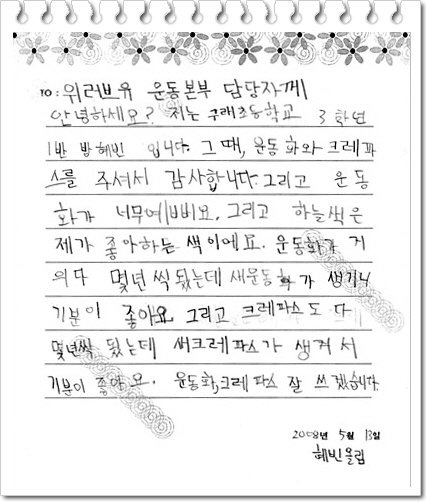 TO: 위러브유 운동본부 담당자께
안녕하세요? 저는 구래초등학교 3학년
1반 방혜빈 입니다. 그 때, 운동화와 크레파
스를 주셔서 감사합니다. 그리고 운동
화가 너무예뻐요. 그리고 하늘색은
제가 좋아하는 색이에요. 운동화가 거
의다 몇년 씩 됬는데 새운동화가 생기니
기분이 좋아요. 그리고 크레파스도 다
몇년씩 됬는데 새크레파스가 생겨서
기분이 좋아요. 운동화,크레파스 잘 쓰겠습니다
2008년 5월 13일
혜빈올림